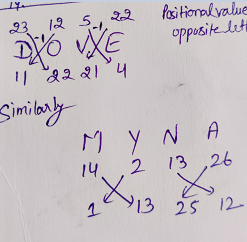 14.
23 12 5 22
D -1 O V -1 E
11 22 21 4
Positional value
opposite lett
Similarly
M Y N A
14 2 13 26
1 13 25 12